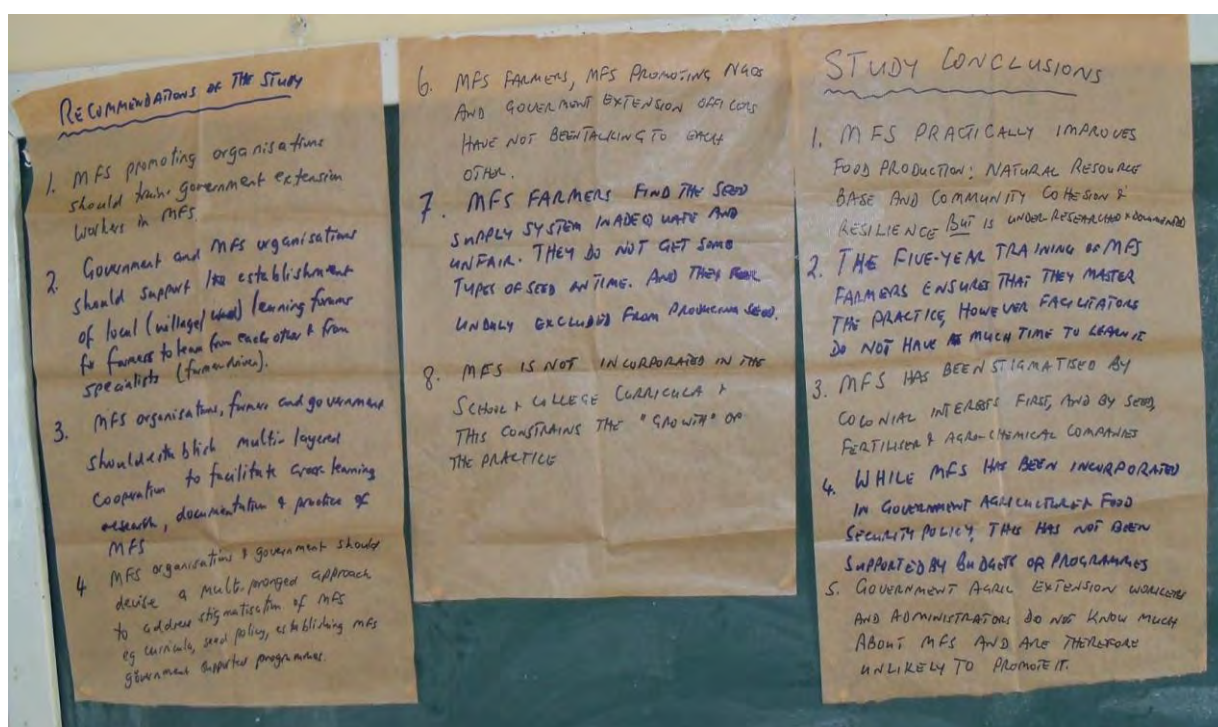 RECOMMENDATIONS OF THE STUDY
1. MFS promoting organisations
should train government extension
workers in MFS.
2. Government and MFS organisations
should support the establishment
of local (village/ward) learning forums
for farmers to learn from each other & from
specialists (farmer driven).
3. MFS organisations, farmers and government
should establish multi-layered
cooperation to facilitate cross learning
research, documentation & practice of
MFS
4 MFS organisations & government should
devise a multi-pronged approach
to address stigmatisation of MFS
eg curricula, seed policy, establishing MFS
government supported programmes.
6. MFS FARMERS, MFS PROMOTING NGOS
AND GOVERMENT EXTENSION OFFICERS
HAVE NOT BEEN TALKING TO EACH
OTHER.
7. MFS FARMERS FIND THE SEED
SUPPLY SYSTEM INADEQUATE AND
UNFAIR. THEY DO NOT GET SOME
TYPES OF SEED ON TIME. AND THEY
UNDULY EXCLUDED FROM PRODUCING SEED.
8. MFS IS NOT INCORPORATED IN THE
SCHOOL & COLLEGE CURRICULA &
THIS CONSTRAINS THE "GROWTH" OF
THE PRACTICE
STUDY CONCLUSIONS
1. MFS PRACTICALLY IMPROVES
FOOD PRODUCTION; NATURAL RESOURCE
BASE AND COMMUNITY COHESION &
RESILIENCE BUT IS UNDER RESEARCHED & DOCUMENTED
2. THE FIVE-YEAR TRAINING OF MFS
FARMERS ENSURES THAT THEY MASTER
THE PRACTICE, HOWEVER FACILITATORS
DO NOT HAVE MUCH TIME TO LEARN IT
3. MFS HAS BEEN STIGMATISED BY
COLONIAL INTERESTS FIRST, AND BY SEED,
FERTILISER & AGRO-CHEMICAL COMPANIES
4. WHILE MFS HAS BEEN INCORPORATED
IN GOVERNMENT AGRICULTURE & FOOD
SECURITY POLICY, THIS HAS NOT BEEN
SUPPORTED BY BUDGETS OR PROGRAMMES
5. GOVERNMENT AGRIC EXTENSION WORKERS
AND ADMINISTRATORS DO NOT KNOW MUCH
ABOUT MFS AND ARE THEREFORE
UNLIKELY TO PROMOTE IT.